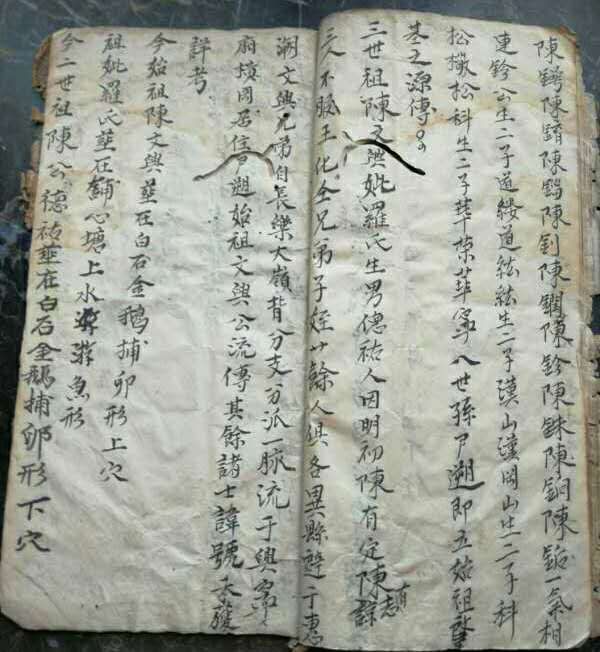 陳鏄陳錥陳錫陳釗陳鐗陳鈐陳銖陳銅陳鉛一氣相
連鈐公生二子道綬道紘紘生二子漢山漢岡山生二子科
松撇松科生二子華榮華寧八世孫尸遡即立始祖肇
基之源傳
三世祖陳文興妣羅氏生男德祐人因明初陳有定陳諒
有志
三人不服王化仝兄弟子姪廿餘人俱各異縣避于惠
潮文興兄弟自長樂大嶺背分支分派一脉流于興寧
府横岡居住尸遡始祖文興公流傳其餘諸士諱號未獲
詳考
今始祖陳文興塟在白石金鵝捕卵形上穴
祖妣羅氏塟在舖心塘上水游魚形
今二世祖陳公德祐塟在白石金鵝捕卵形下穴